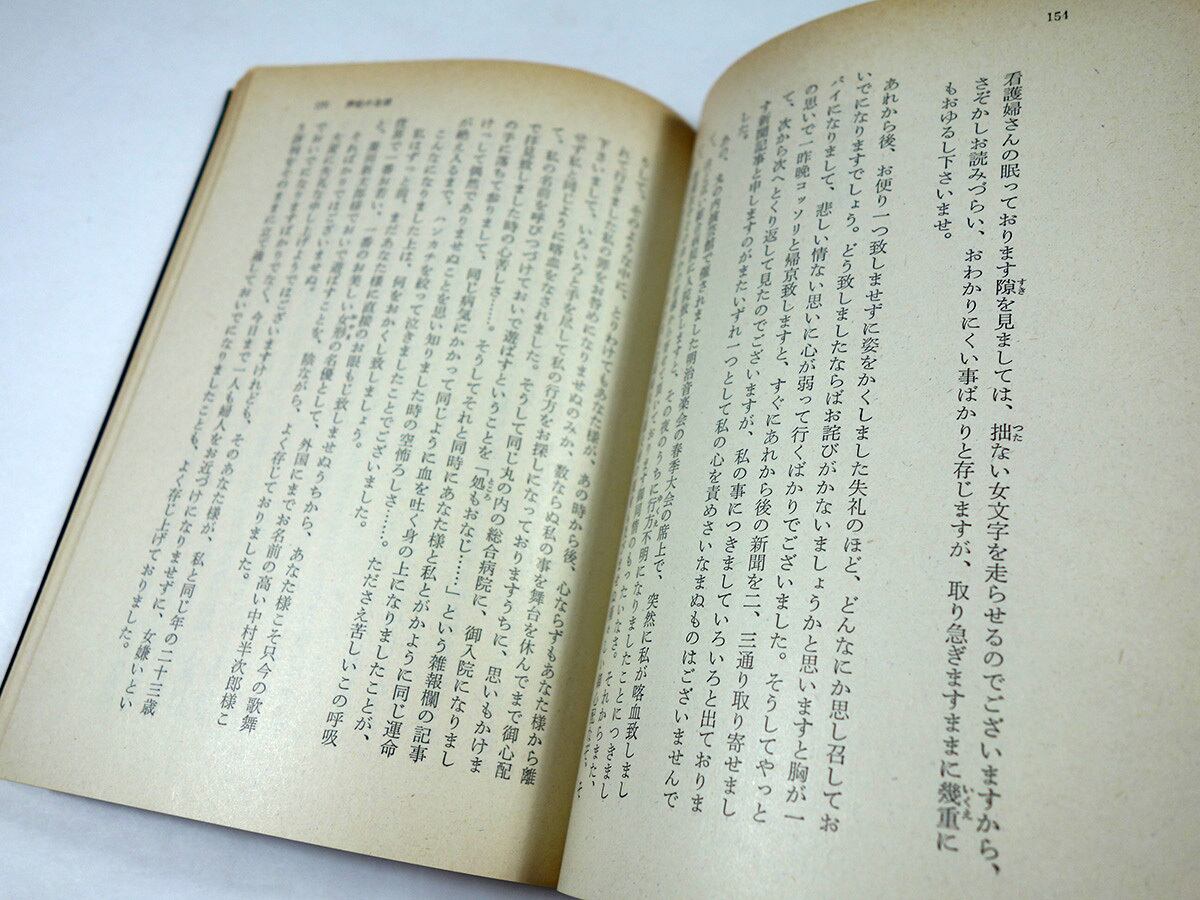 154
看護婦さんの眠っております隙を見ましては、拙ない女文字を走らせるのでございますから、
さぞかしお読みづらい、おわかりにくい事ばかりと存じますが、取り急ぎますままに幾重に
もおゆるし下さいませ。
あれから後、お便り一つ致しませずに姿をかくしました失礼のほど、どんなにか思し召してお
いでになりますでしょう。どう致しましたならばお詫びがかないましょうかと思いますと胸が一
パイになりまして、悲しい情ない思いに心が弱って行くばかりでございました。そうしてやっと
の思いで一昨晩コッソリと帰京致しますと、すぐにあれから後の新聞を二、三通り取り寄せまし
て、次から次へとくり返して見たのでございますが、私の事につきましていろいろと出ておりま
す新聞記事と申しますのがまたいずれ一つとして私の心を責めさいなまぬものはございませんで
した。
あの、丸の内演芸館で催されました明治音楽会の春季大会の席上で、突然に私が喀血致しまし
その夜のうちに行方不明になりましたことにつきまし
それからまた、
そうして、そのような中に、とりわけてもあなた様が、あの時から後、心ならずもあなた様から離
れて行きました私の罪をお咎めになりませぬのみか、数ならぬ私の事を舞台を休んでまで御心配
下さいまして、いろいろと手を尽して私の行方をお探しになっておりますうちに、思いもかけま
せず私と同じように喀血をなされました。そうして同じ丸の内の総合病院に、御入院になりまし
て、私の名前を呼びつづけておいで遊ばすということを「処もおなじ……」という雑報欄の記事
で拝見致しました時の心苦しさ……。そうしてそれと同時にあなた様と私とがかように同じ運命
の手に落ちて参りまして、同じ病気にかかって同じように血を吐く身の上になりましたことが、
けっして偶然でありませぬことを思い知りました時の空怖ろしさ……。たださえ苦しいこの呼吸
が絶え入るまで、ハンカチを絞って泣きました時の空怖ろしさ
こんなになりました上は、何をおかくし致しましょう。
私はずっと前、まだあなた様に直接のお眼もじ致しませぬうちから、あなた様こそ只今の歌舞
伎界で一番お若い、一番のお美しい女形の名優として、外国にまでお名前の高い中村半次郎様こ
と、菱田新太郎様でおいで遊ばすことを、陰ながら、よく存じておりました。
そればかりではございませぬ。
大変に失礼な申し上げようではございますけれども、そのあなた様が、私と同じ年の二十三歳
でおいでになりますばかりでなく、今日まで一人も婦人をお近づけになりませずに、女嫌いとい
う評判をそのままに立て通しておいでになりましたことも、よく存じ上げておりました。